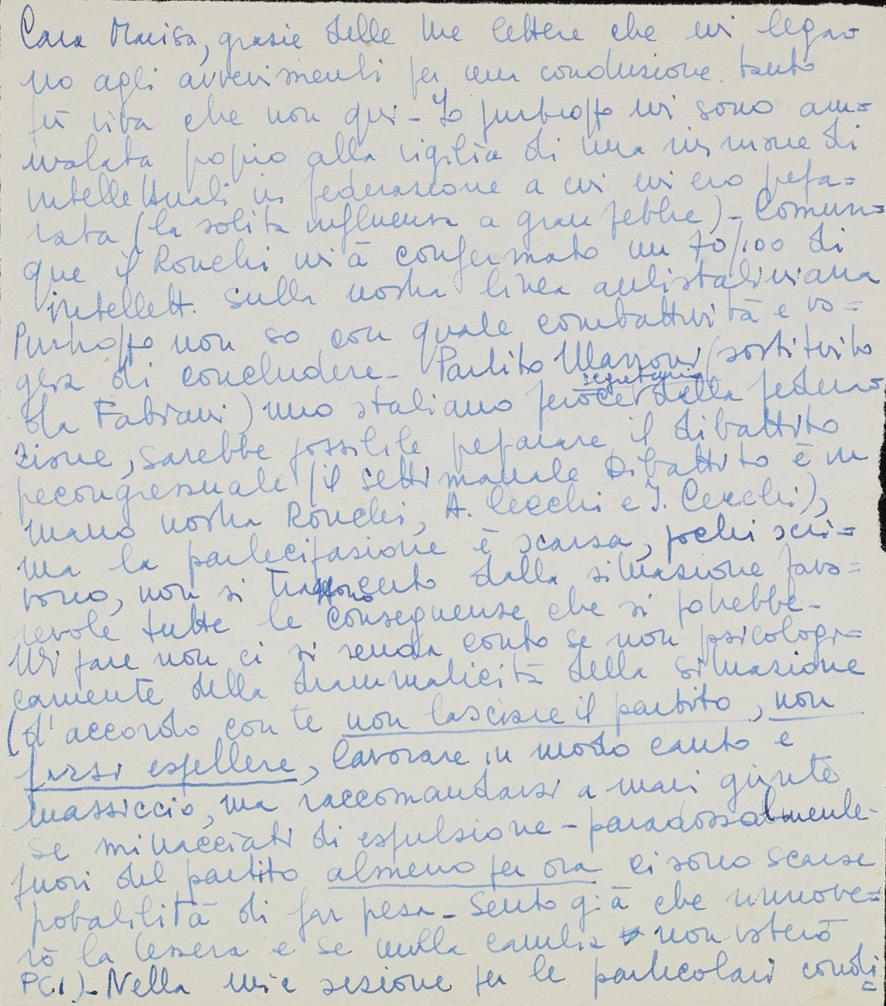 Cara Marisa, grazie delle tue lettere che mi legano
no agli avvenimenti per una conduzione tanto
più viva che non qui - Io purtroppo mi sono am=
malata proprio alla vigilia di una riunione di
intellettuali in federazione a cui mi ero prepa=
rata (la solita influenza a gran febbre) - Comun=
que il Ronchi mi à confermato un 70/100 di
intellett. sulla nostra linea antistaliniana
Purtroppo non so con quale combattività e vo=
glia di concludere - Partito Mazzoni (sostituito
da Fabiani) uno staliano feroce segretario della federa
zione, sarebbe possibile preparare il dibattito
precongressuale (il settimanale Dibattito è in
mano nostra Ronchi, A. Cecchi e I. Cecchi),
ma la partecipazione è scarsa, pochi scri=
vono, non si traggono dalla situazione favo=
revole tutte le conseguenze che si potrebbe-
Mi pare non ci si renda conto se non psicologi=
camente della drammaticità della situazione
(d'accordo con te non lasciare il partito, non
farsi espellere, lavorare in modo cauto e
massiccio, ma raccomandarsi a mani giunte
se minacciati di espulsione - paradossalmente -
fuori del partito almeno per ora ci sono scarse
probabilità di far pesa - Sento già che rinnove=
rò la tessera e se nulla cambia non voterò
PCI) - Nella mia sezione per le particolari condi